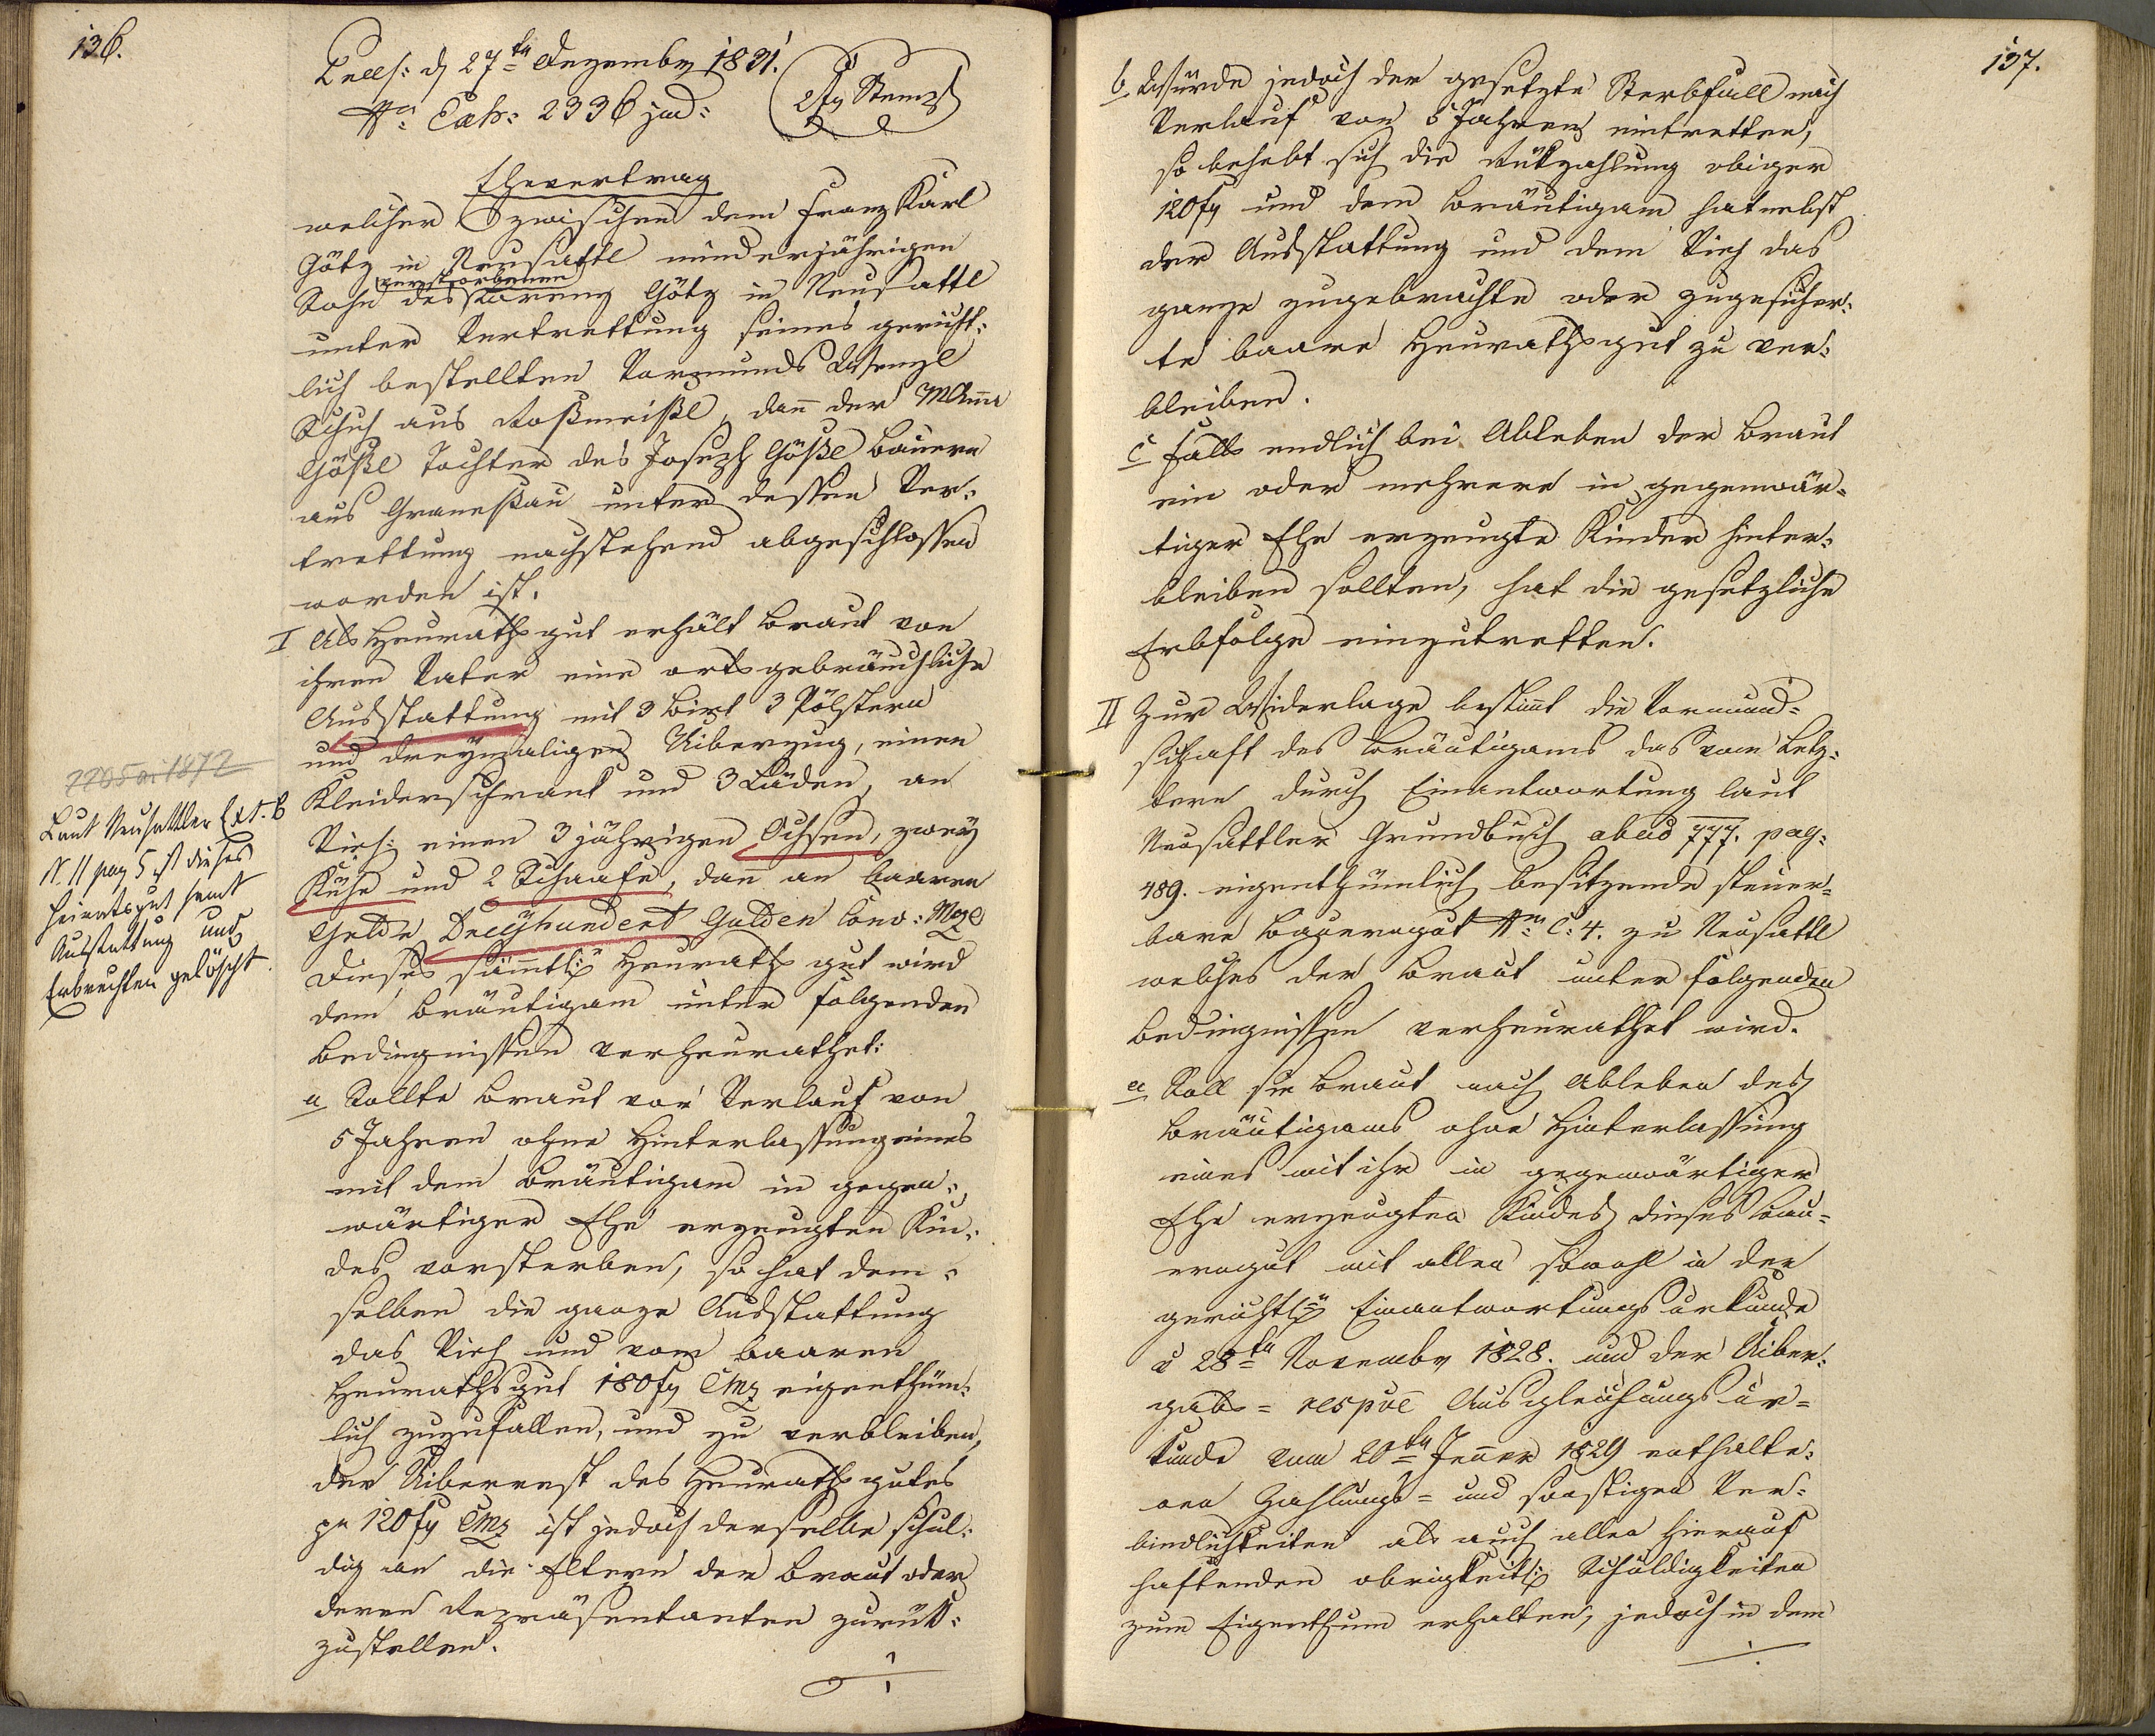 136.
Præs: d 27ten Dezember 1831.
Nro Exh: 2336 jud:
2 fg Stempl
Ehevertrag
welcher zwischen dem Franz Karl
Götz in Neusattl minderjährigen
verstorbenen
Sohn des Lorenz Götz in Neusattl
unter Vertrettung seines gericht:
lich bestellten Vormunds Wenzl
Schuh aus Roßmeißl, dann der MAnna
Gößl Tochter des Joseph Gößl Bauern
aus Graneßau unter dessen Ver:
trettung nachstehend abgeschlossen
worden ist.
I Als Heurathsgut erhält Braut von
ihren Vater eine ortsgebräuchliche
Ausstattung mit 3 Bret 3 Pölstern
und dreymaligen Uiberzug, einen
Kleiderschrank und 3 Läden, an
Vieh: einen 3jährigen Ochsen, zwey
Kühe und 2 Schaafe, dann an baaren
Gelde Dreyhundert Gulden Conv: Mze
Dieses sämmtl: Heurathsgut wird
dem Bräutigam unter folgenden
Bedingnissen verheurathet:
a Sollte Braut vor Verlauf von
5 Jahren ohne Hinterlassung eines
mit dem Bräutigam in gegen:
wärtiger Ehe erzeugten Kin:
des vorsterben, so hat dem:
selben die ganze Ausstattung
das Vieh und vom baaren
Heurathsgut 180 fg CMz eigenthüm:
lich zuzufallen, und zu verbleiben,
der Uiberrest des Heurathsgutes
pr 120 fg CMz ist jedoch derselbe schul:
dig an die Eltern der Braut oder
deren Repräsentanten zurük:
zustellen.
./.
1872
Laut Neusattler Ext. B
N. 11 pag 5 ist dieses
Heiratsgut samt
Ausstattung und
Erbrechten gelöscht.
137.
b Würde jedoch der gesetzte Sterbfall nach
Verlauf von 5 Jahren eintretten,
so behebt sich die Rükzahlung obiger
120 fg und dem Bräutigam hat nebst
der Ausstattung und dem Vieh das
ganze zugebrachte oder zugesicher:
te baare Heurathsgut zu ver:
bleiben.
c Falls endlich bei Ableben der Braut
ein oder mehrere in gegenwär:
tiger Ehe erzeugte Kinder hinter:
bleiben sollten, hat die gesetzliche
Erbfolge einzutretten.
II Zur Widerlage bestimmt die Vormund:
schaft des Bräutigams das vom Letz:
tern durch Einantwortung laut
Neusattler Grundbuch abud 777. pag:
489. eigenthümlich besitzende steuer:
bare Bauerngut Nro C: 4. zu Neusattl
welches der Braut unter folgenden
Bedingnissen verheurathet wird.
a Soll die Braut nach Ableben des
Bräutigams ohne Hinterlassung
eines mit ihr in gegenwärtiger
Ehe erzeugten Kindes dieses Bau=
erngut mit allen sowohl in der
gerichtl: Einantwortungsurkunde
v 28ten November 1828. und der Uiber:
gabs= respve Ausgleichungsur=
kunde vom 20ten Jenner 1829 enthalte:
nen Zahlungs= und sonstigen Ver:
bindlichkeiten als auch allen hierauf
haftenden obrigkeitl: Schuldigkeiten
zum Eigenthum erhalten, jedoch in dem
./.